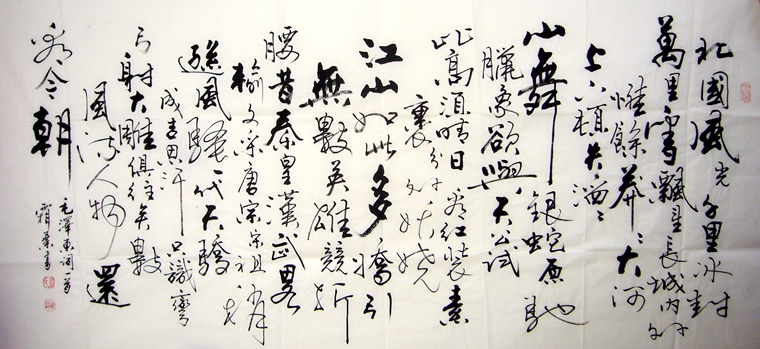 北國風光千里冰封
萬里雪飄望長城内外
惟餘莽〻大河
上下頓失滔〻
山舞銀蛇原馳
臘象欲與天公試
比高須晴日看紅裝素
裹分外妖嬈
江山如此多嬌引
無數英雄競折
腰昔秦皇漢武略
輸文采唐宗宋祖稍
遜風騷一代天驕
成吉思汗只識彎
弓射大雕俱往矣數
風流人物還
看今朝
毛澤東詞一首